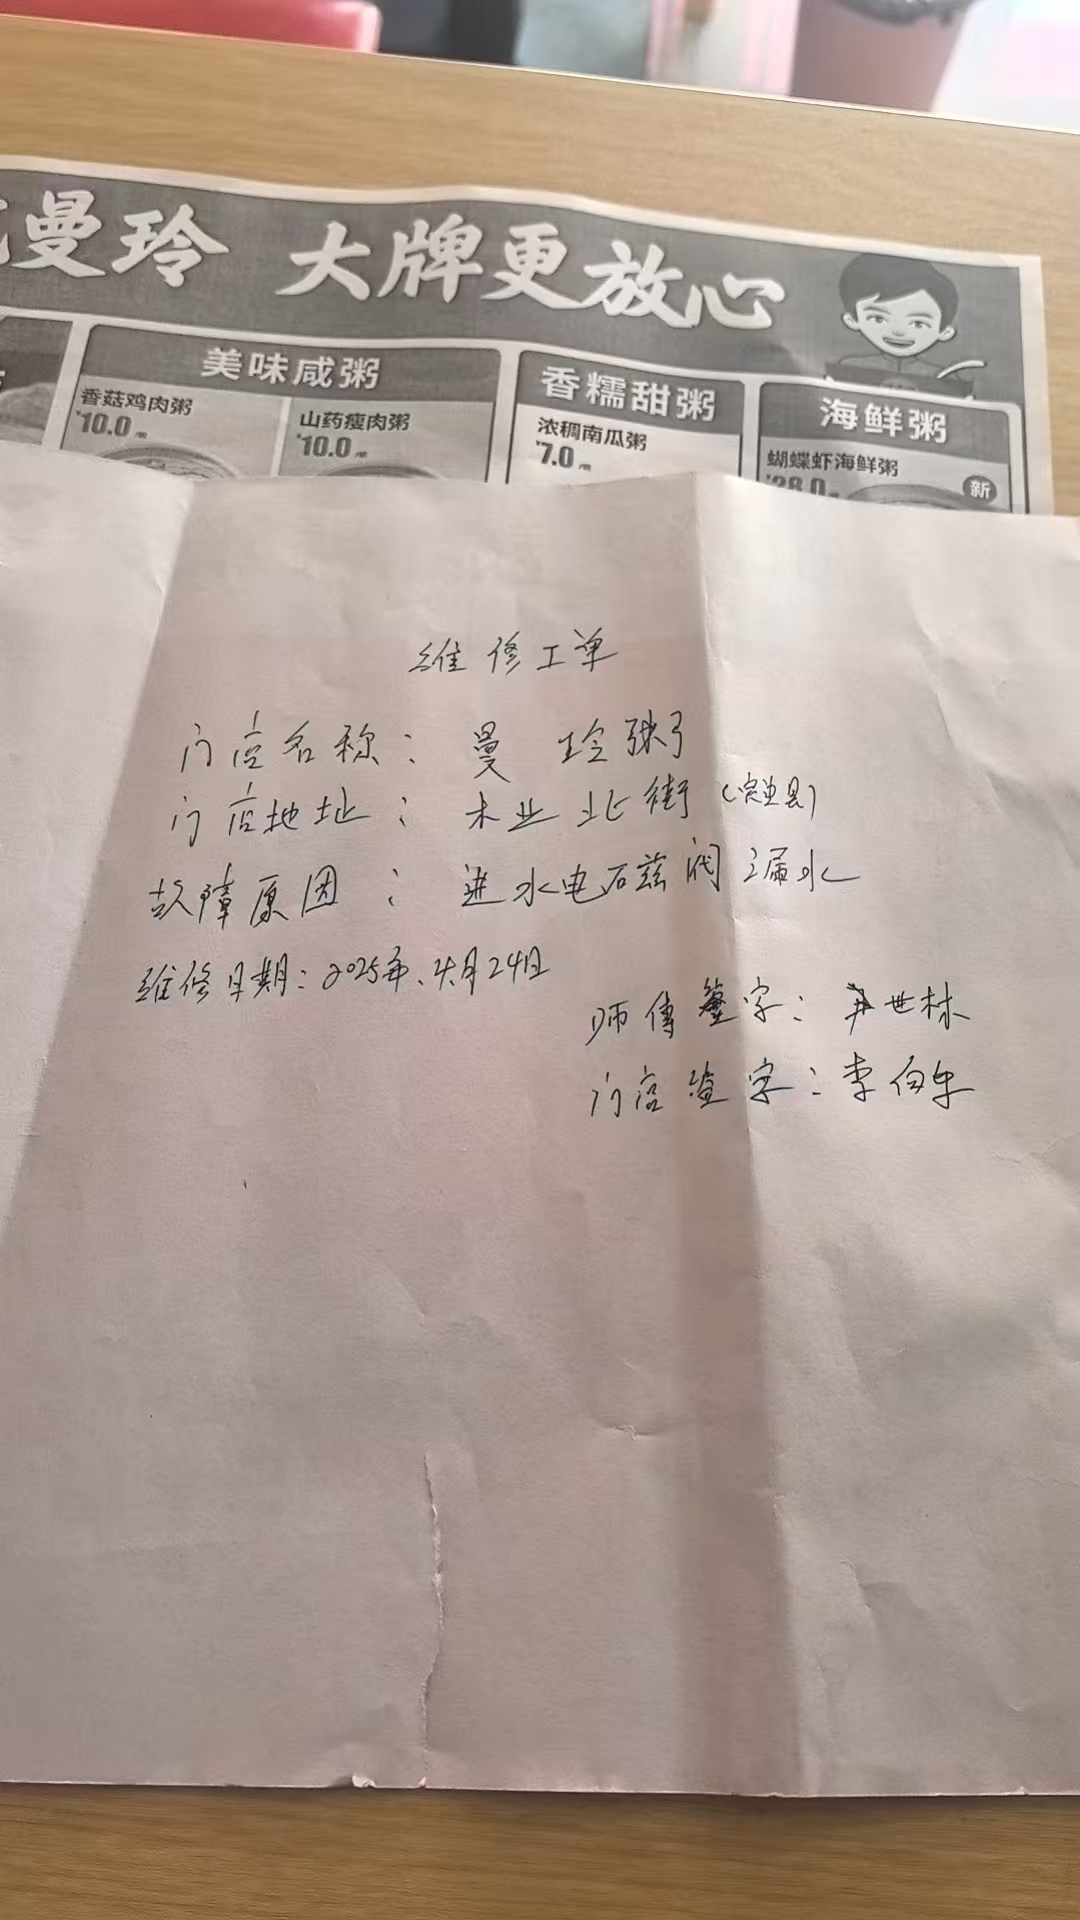 曼玲 大牌更放心
美味咸粥 香糯甜粥 海鲜粥
香菇鸡肉粥 山药瘦肉粥 浓稠南瓜粥 蝴蝶虾海鲜粥
¥10.0 ¥10.0 ¥7.0 新
维修工单
门店名称：曼玲粥
门店地址：木业北街
故障原因：进水电磁阀漏水
维修日期：2025年.4月24日
师傅签字：尹世林
门店签字：李白牛